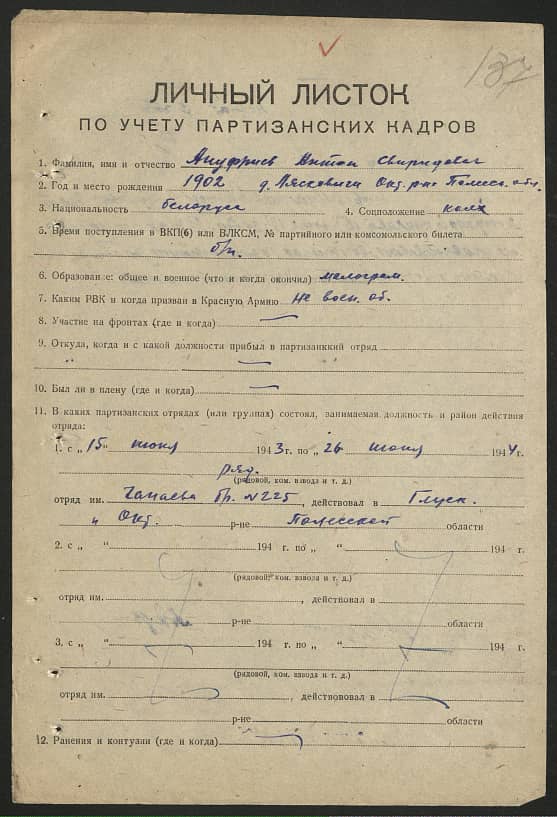 137
ЛИЧНЫЙ ЛИСТОК
ПО УЧЕТУ ПАРТИЗАНСКИХ КАДРОВ
1. Фамилия, имя и отчество Ануфриев Антон Свиридович
2. Год и место рождения 1902 д. Лясковичи Окт. р-на Полесс. обл.
3. Национальность белорус 4. Соцположение колх
5. Время поступления в ВКП(б) или ВЛКСМ, № партийного или комсомольского билета
б/п.
6. Образование: общее и военное (что и когда окончил) малограм.
7. Каким РВК и когда призван в Красную Армию не воен. об.
8. Участие на фронтах (где и когда)
9. Откуда, когда и с какой должности прибыл в партизанкий отряд
10. Был ли в плену (где и когда)
11. В каких партизанских отрядах (или группах) состоял, занимаемая должность и район действия
отряда:
1. с „ 15 “ июня 1943 г. по „ 26 июня 1944 г.
ряд.
(рядовой, ком. взвода и т. д.)
отряд им. Чапаева бр. № 225, действовал в Глуск.
и Окт. р-не Полесской области
2. с „ “ 194 г. по „ “ 194 г.
(рядовой, ком. взвода и т. д.)
отряд им. , действовал в
р-не области
3. с „ “ 194 г. по „ “ 194 г.
(рядовой, ком. взвода и т. д.)
отряд им. , действововал в
р-не области
12. Ранения и контузии (где и когда)